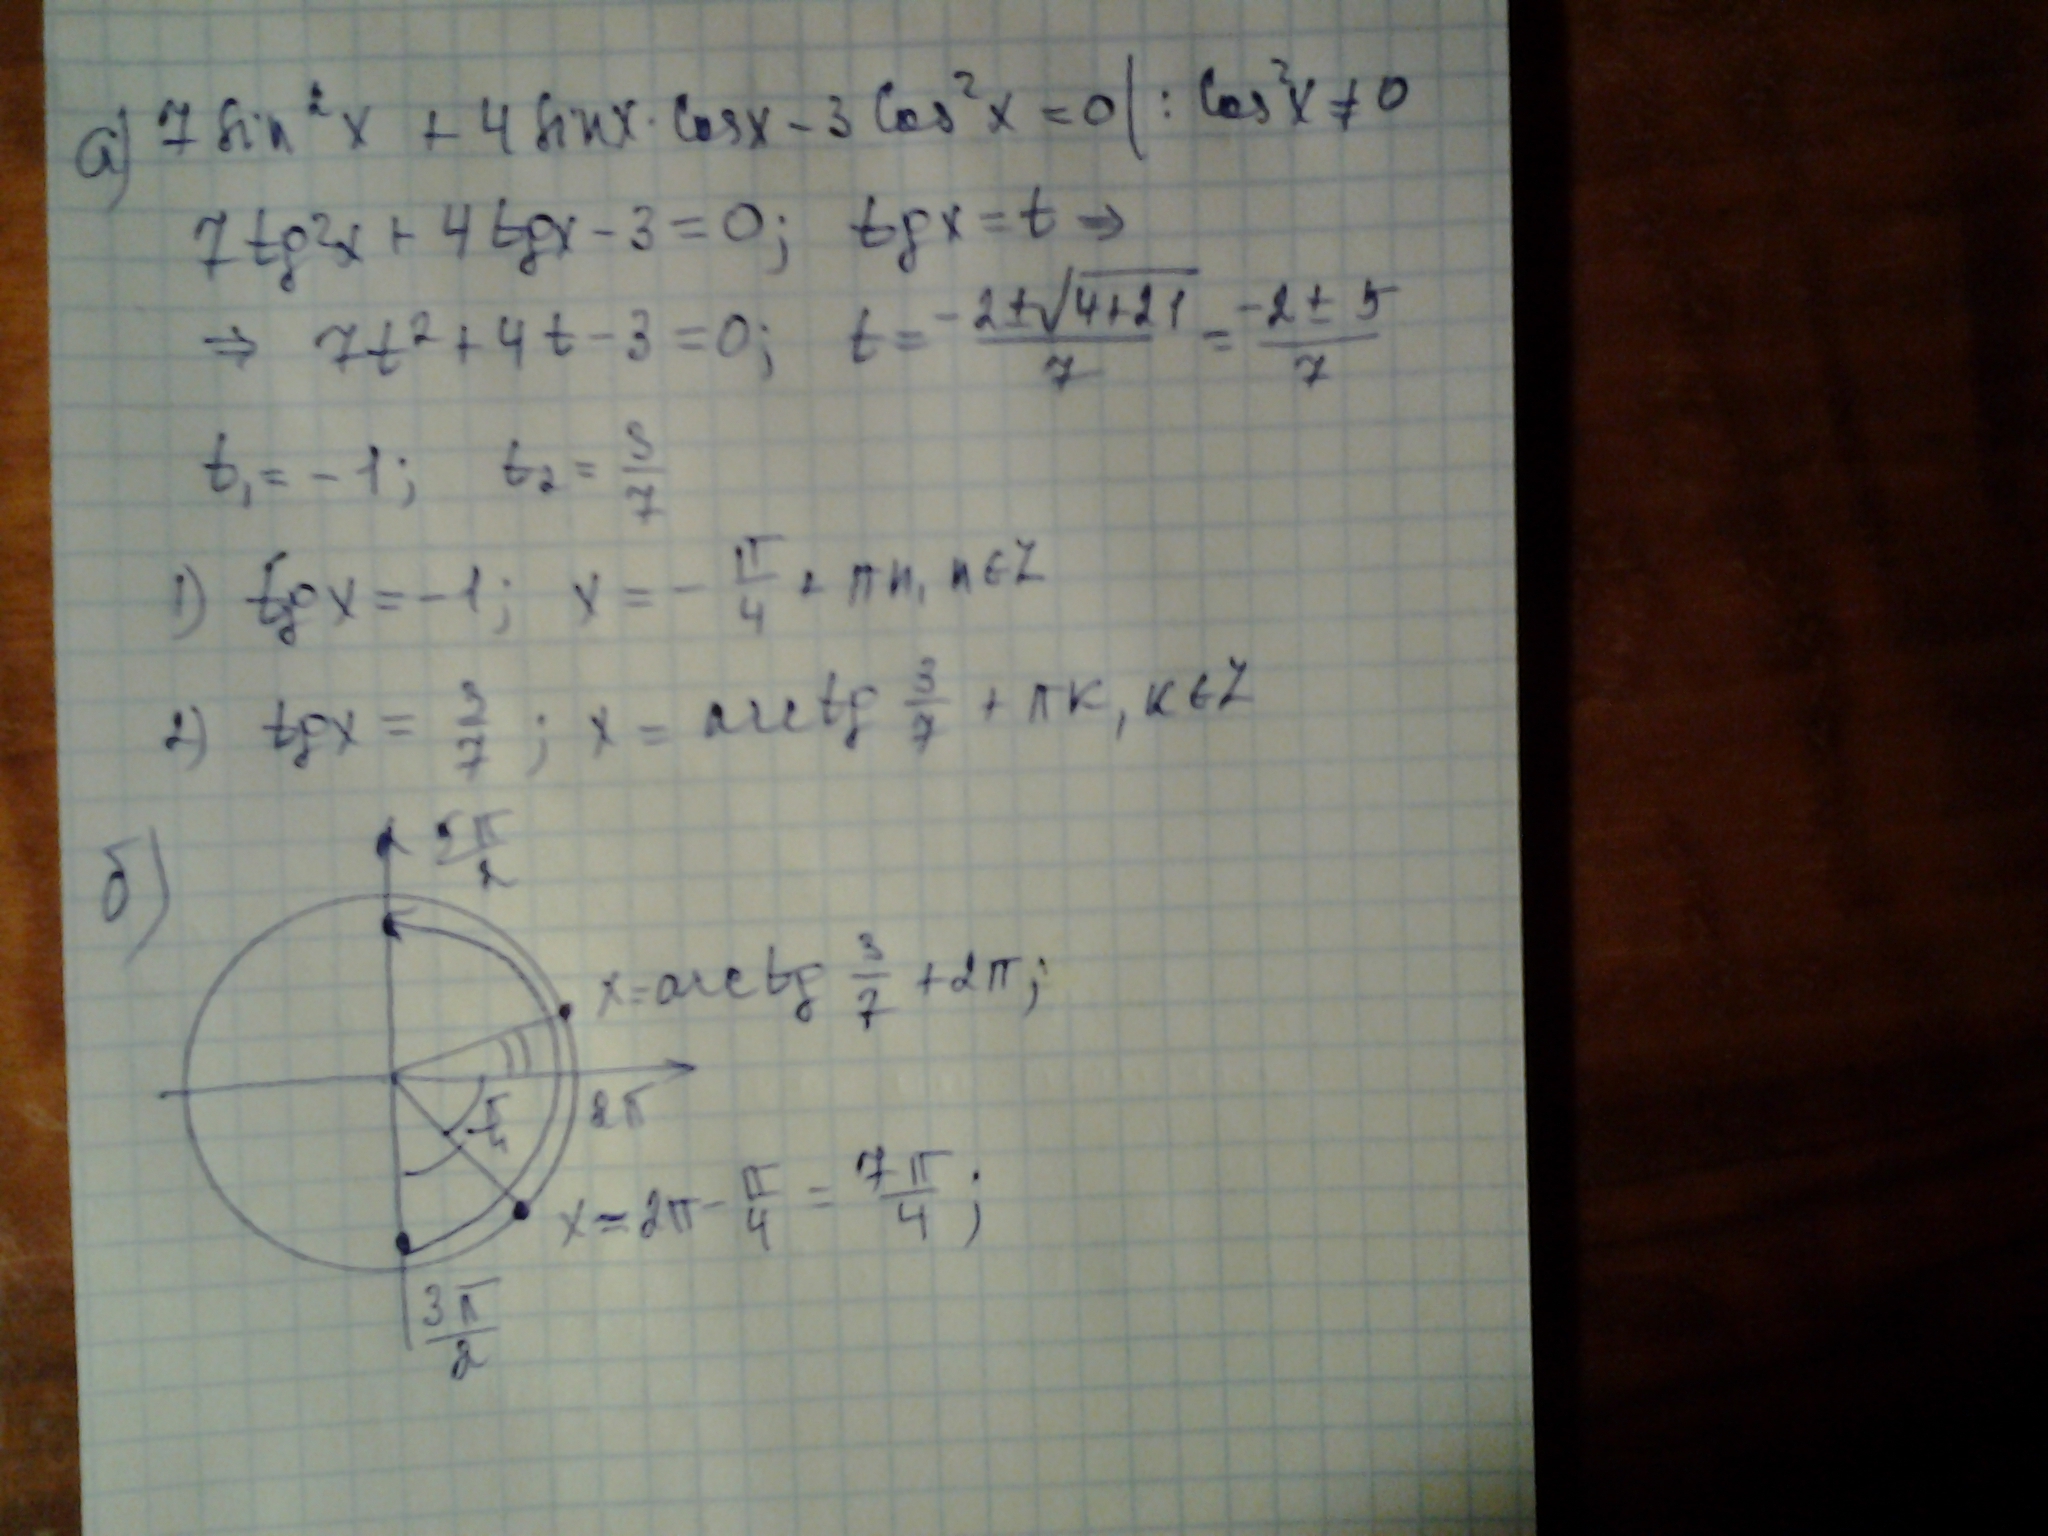 а) 7 sin²x + 4 sinx · cosx – 3 cos²x = 0 | : cos²x ≠ 0
7tg²x + 4tgx – 3 = 0; tgx = t ⇒
⇒ 7t² + 4t – 3 = 0; t = (-2±√(4+21))/7 = (-2±5)/7
t₁ = -1; t₂ = 3/7
1) tgx = -1; x = -π/4 + πn, n∈Z
2) tgx = 3/7; x = arctg 3/7 + πк, к∈Z
б)
5π/2
x = arctg 3/7 + 2π;
2π
π/4
x = 2π - π/4 = 7π/4;
3π/2